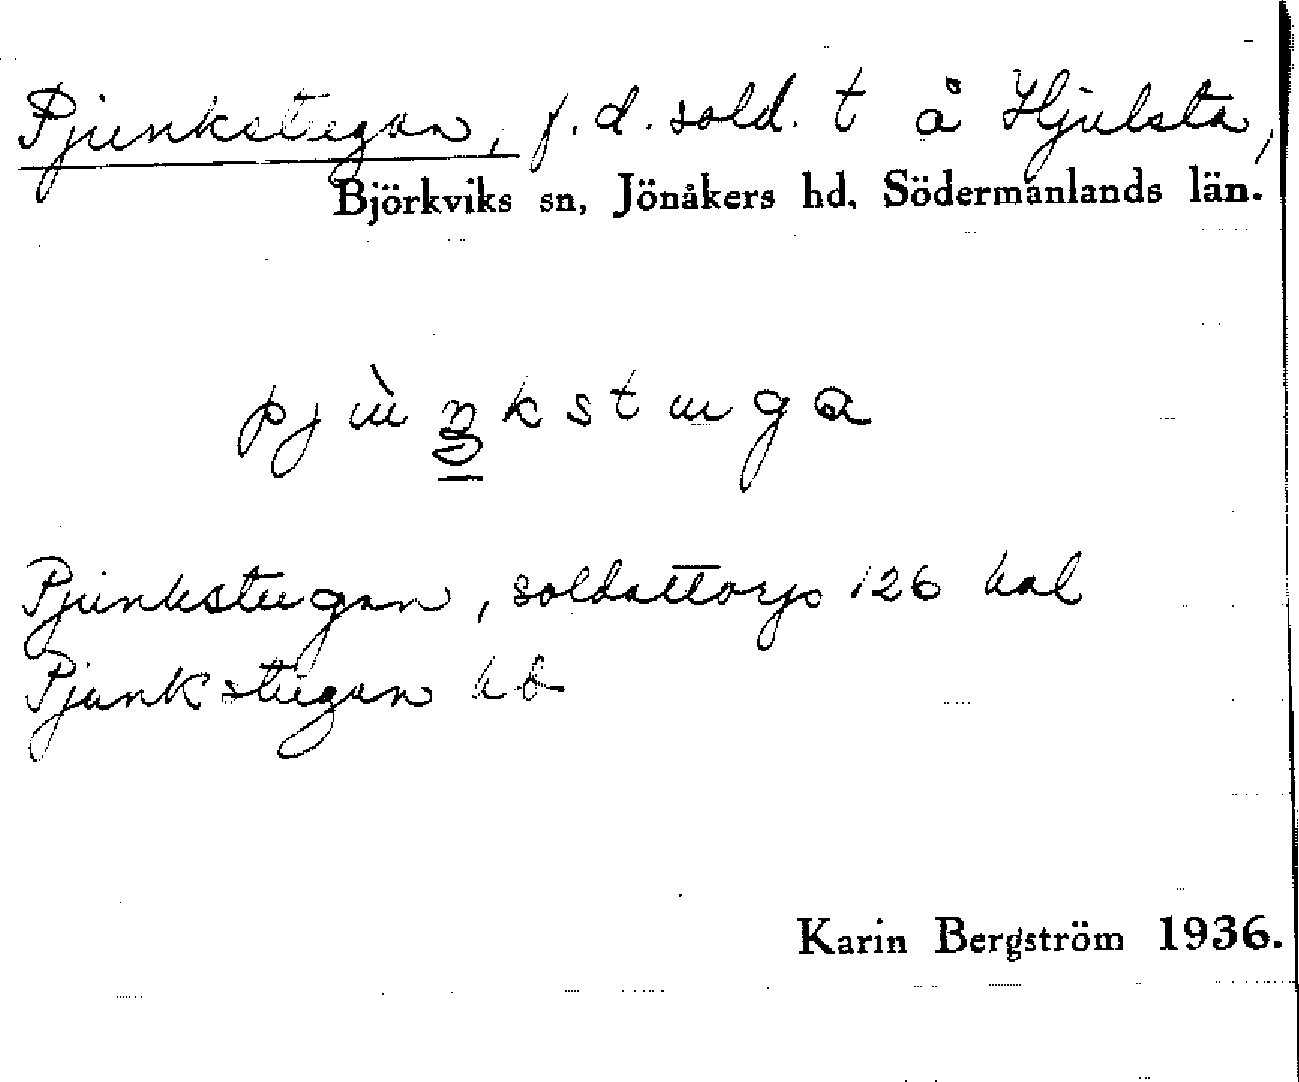 Pjunkstugan, f. d. sold. t å Hjulsta,
Björkviks sn, Jönåkers hd, Södermanlands län.
pjùŋkstuga
Pjunkstugan, soldattorp 126 hal
Pjunkstugan hb
Karin Bergström 1936.